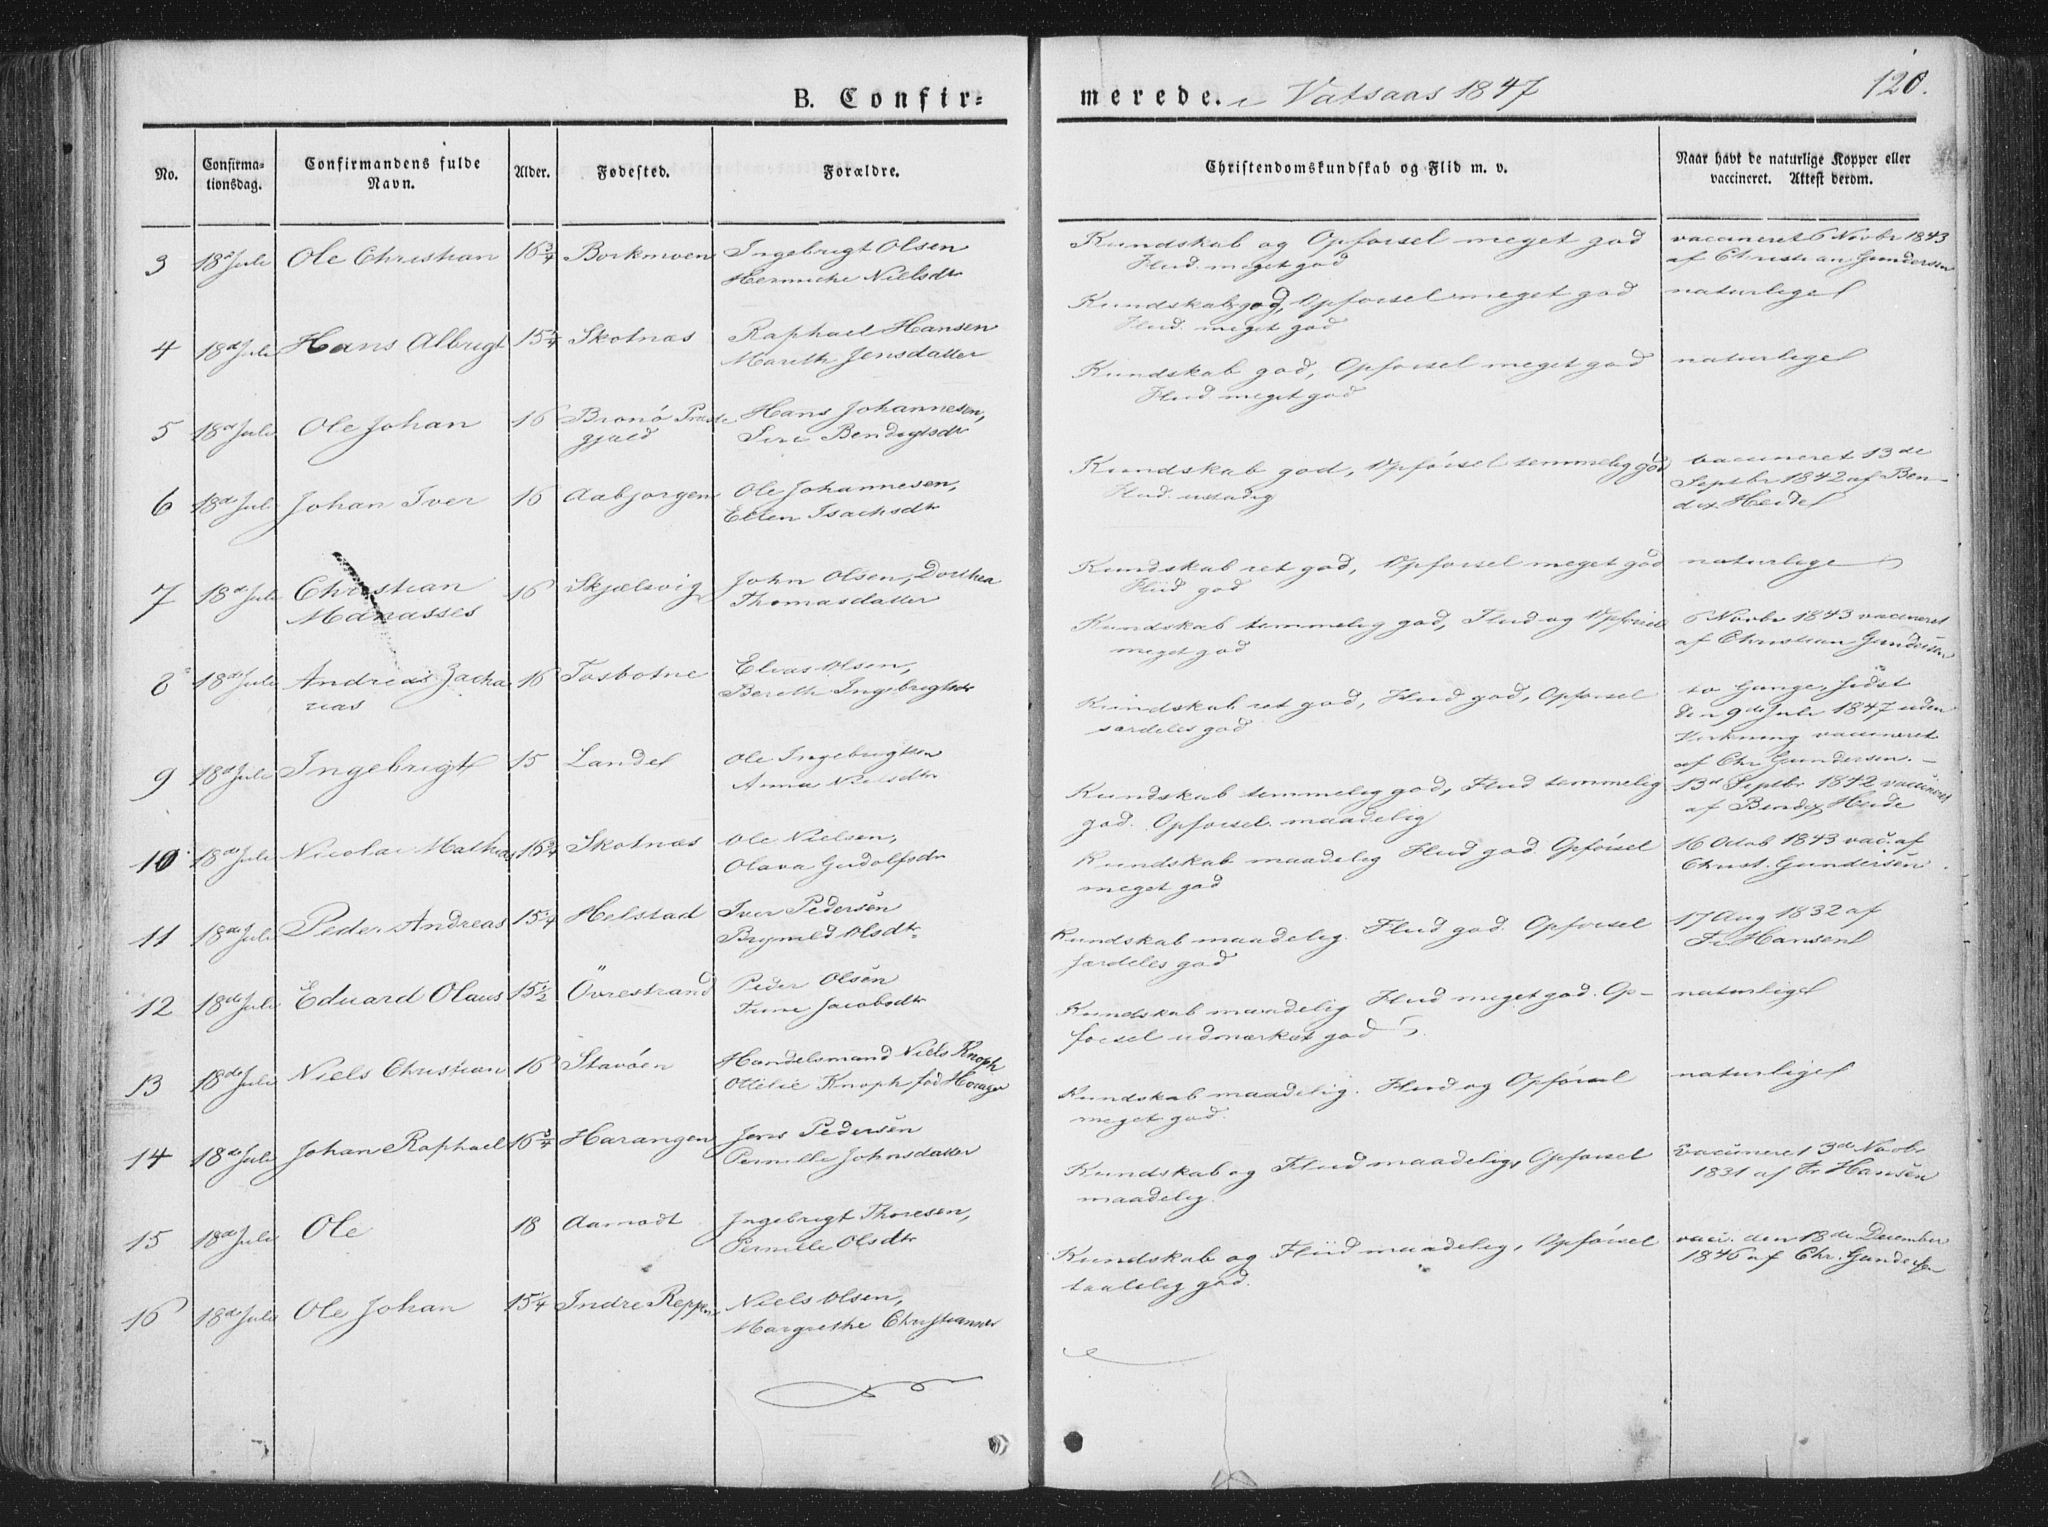 B. Confir-
merede. i Vatsaas 1847
120.
No.
Confirma-
tionsdag.
Confirmandens fulde
Navn.
Alder.
Fødested.
Forældre.
Christendomskundskab og Flid m. v.
Naar havt de naturlige Kopper eller
vaccineret. Attest derom.
3 18de Juli Ole Christian 16 3/4 Borkmoen Ingebrigt Olsen
Hermiche Nielsdtr
Kundskab og Opførsel meget god
Flid meget god
vaccineret 6 Novbr 1843
af Christian Gundersen
4 18de Juli Hans Albrigt 15 1/4 Skotnæs Raphael Hansen
Mareth Jensdatter
Kundskab god, Opførsel meget god
Flid meget god
naturlige
5 18de Juli Ole Johan 16 Brønø Præste
gjæld
Hans Johannesen,
Siri Bendigtsdtr
Kundskab god, Opførsel meget god
Flid meget god
naturlige
6 18de Juli Johan Iver 16 Aabjørgen Ole Johannesen,
Ellen Isachsdtr
Kundskab god, Opførsel temmelig god
Flid ustadig
vaccineret 13de
Septbr 1842 af Ben-
dix Heide
7 18de Juli Christian
Manasses
16 Skjælsvig John Olsen, Dorthea
Thomasdatter
Kundskab ret god, Opførsel meget god
Fliid god
naturlige
8 18de Juli Andreas Zacha
rias
16 Tosbotne Elias Olsen,
Bereth Ingebrigtsdtr
Kundskab temmelig god, Flid og Opførsel
meget god
6 Novbr 1843 vaccineret
af Christian Gundersen
9 18de Juli Ingebrigt 15 Lande Ole Ingebrigtsen
Anna Nielsdtr
Kundskab ret god, Flid god, Opførsel
særdeles god
to Gange, sidst
den 9de Juli 1847 uden
Virkning vaccineret
af Chr Gundersen.
10 18de Juli Nicolai Mathias 16 3/4 Skotnæs Ole Nielsen,
Olava Gudolfsdtr
Kundskab temmelig god, Flid temmelig
god. Opførsel maadelig
13de Septbr 1842 vaccineret
af Bendix Heide
11 18de Juli Peder Andreas 15 1/4 Helstad Iver Pedersen
Brynild Olsdtr
Kundskab maadelig Flid god Opførsel
meget god
16 Octob 1843 vac. af
Christ. Gundersen
12 18de Juli Eduard Olaus 15 1/2 Övrestrand Peder Olsen
Trine Jacobsdtr
Kundskab maadelig. Flid god. Opførsel
særdeles god
17 Aug 1832 af
Fr. Hansen
13 18de Juli Niels Christian 16 Stavöen Handelsmand Niels Knoph
Ottilie Knoph fød
Kundskab maadelig Flid meget god. Op-
førsel udmærket god
naturlige
14 18de Juli Johan Raphael 16 3/4 Harangen Jens Pedersen
Pernille Johnsdatter
Kundskab maadelig. Flid og Opførsel
meget god.
naturlige
15 18de Juli Ole 18 Aamodt Ingebrigt Thoresen,
Pernille Olsdtr
Kundskab og Flid maadelig, Opførsel
maadelig.
Vaccineret 3de Novbr
1831 af Fr Hansen
16 18de Juli Ole Johan 15 1/4 Indre Reppen Niels Olsen,
Margrethe
Kundskab og Fliid maadelig, Opførsel
taalelig god.
vacc. den 18de December
1846 af Chr. Gundersen